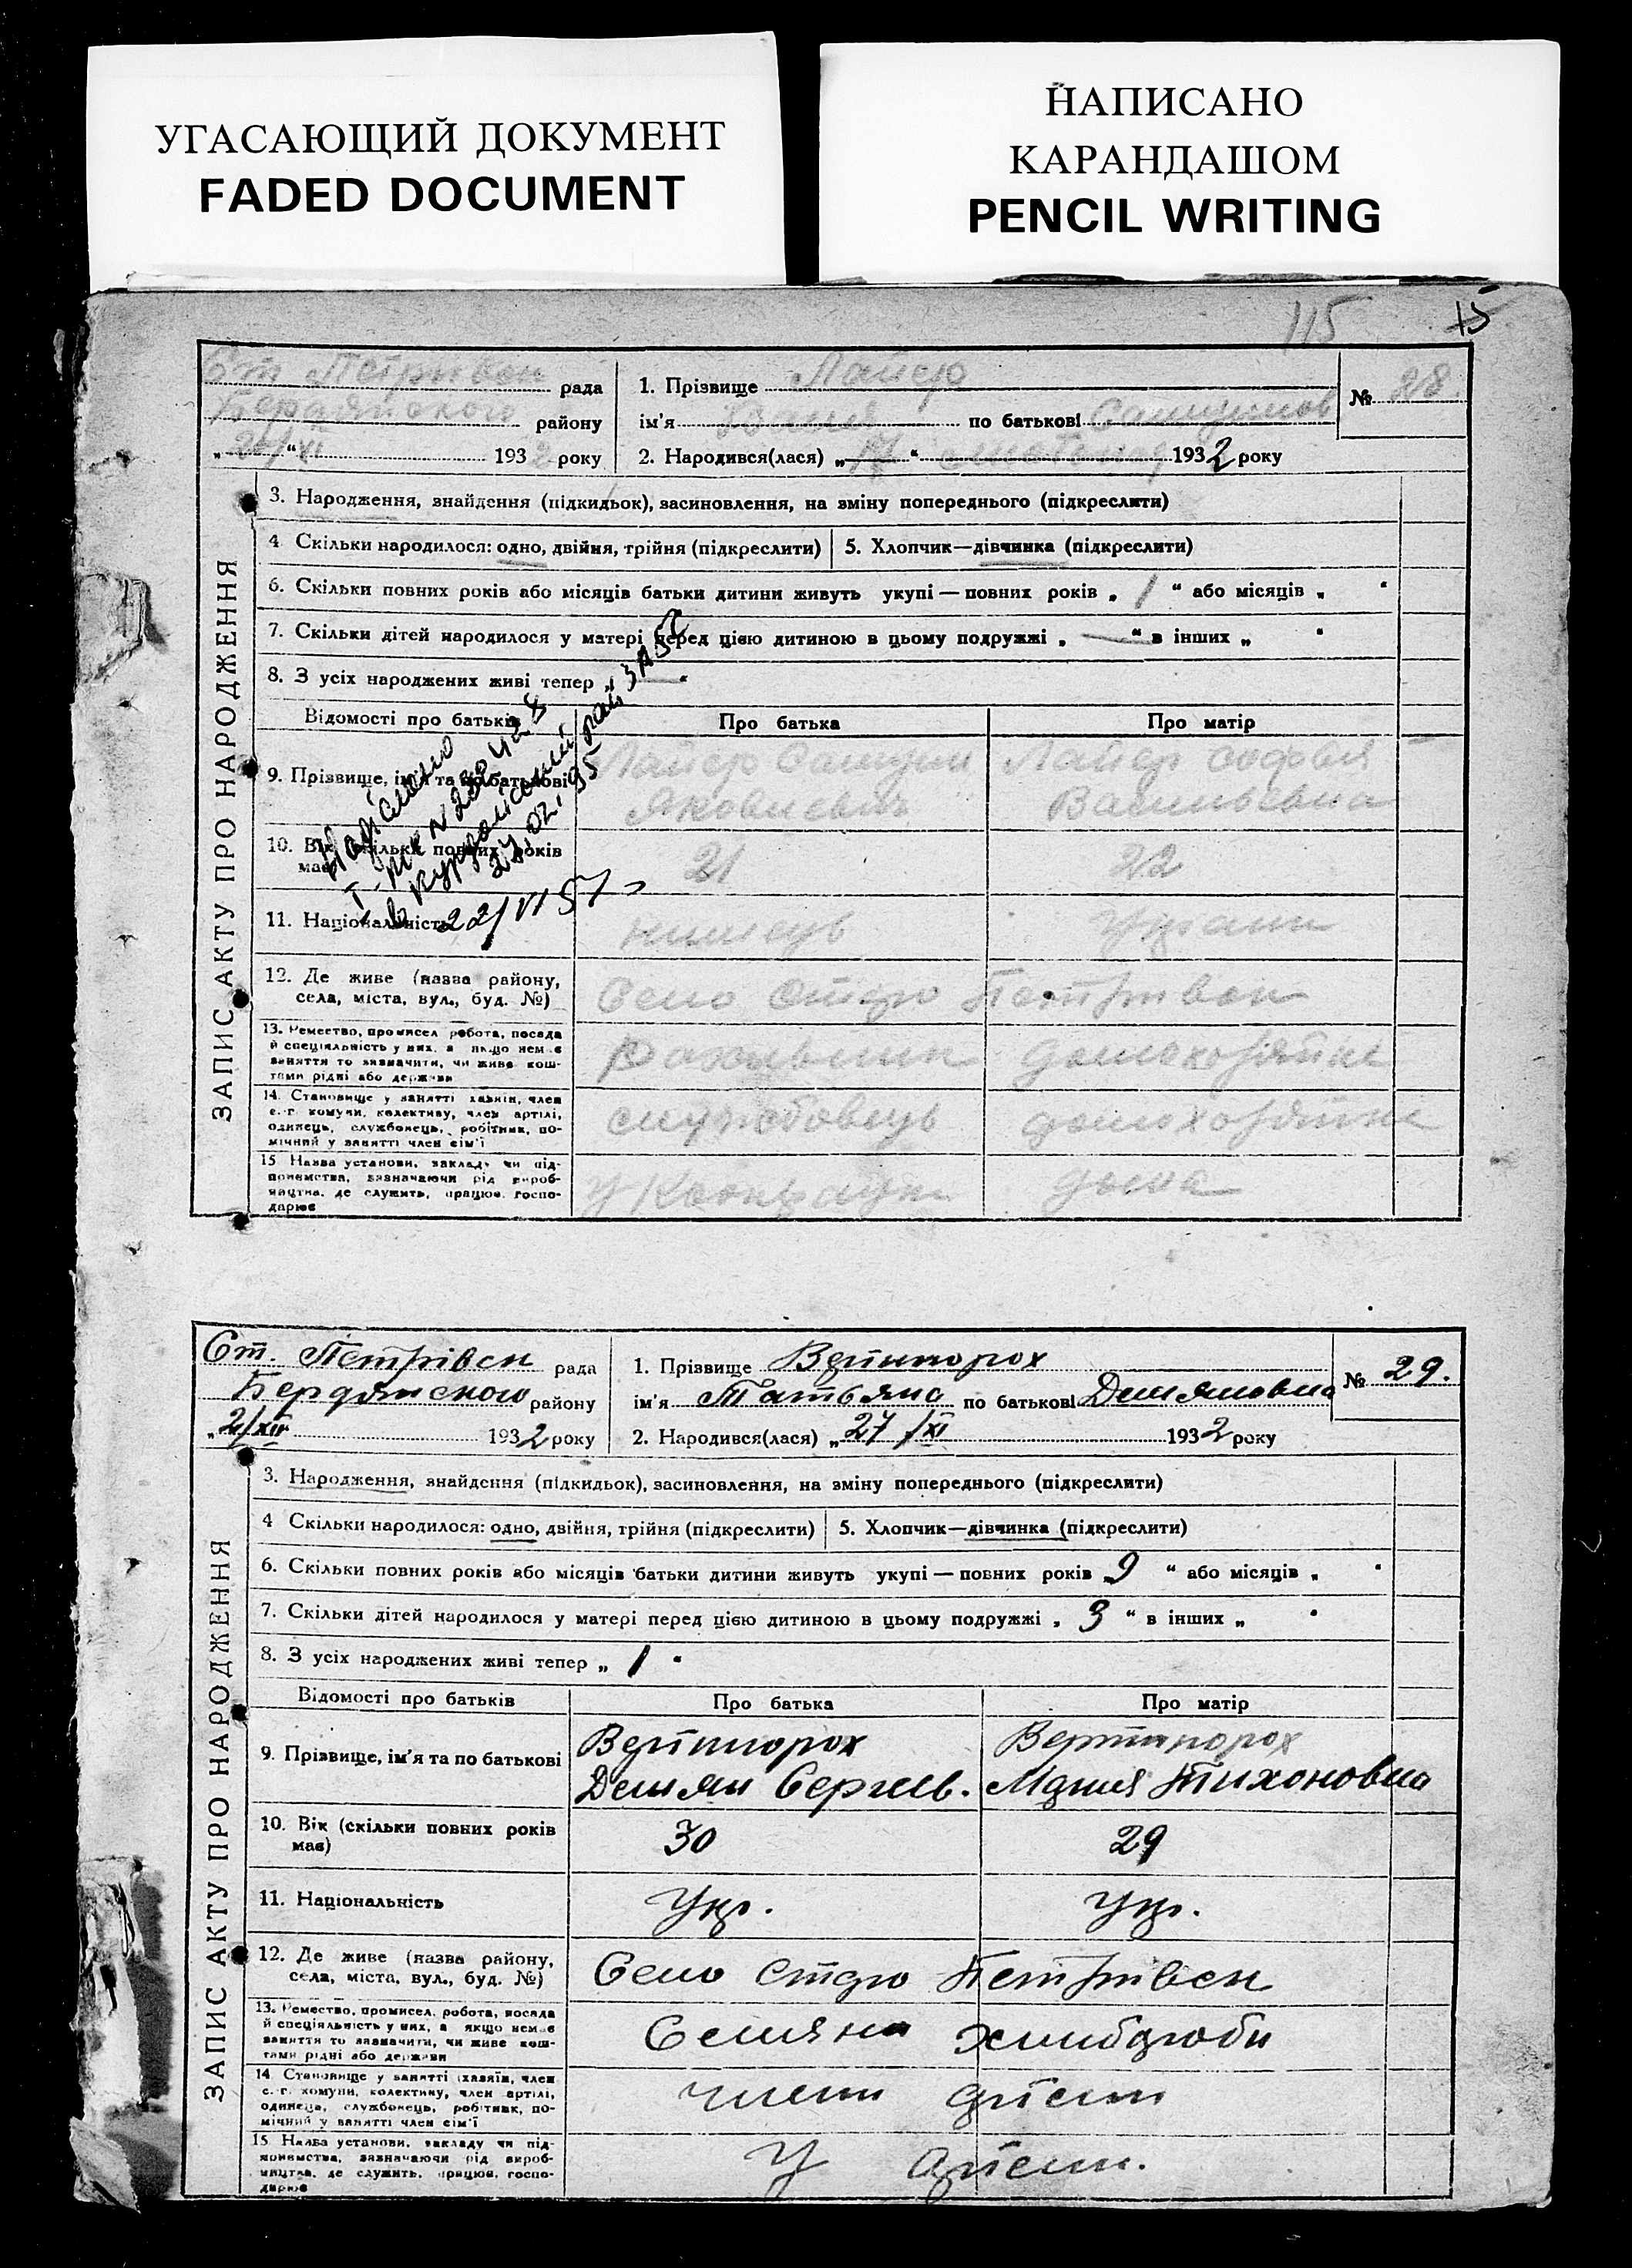 УГАСАЮЩИЙ ДОКУМЕНТ
FADED DOCUMENT
НАПИСАНО
КАРАНДАШОМ
PENCIL WRITING
115 15
ЗАПИС АКТУ ПРО НАРОДЖЕННЯ
Ст Петрівск рада
Бердянського району
193 2 року
1. Прізвище Лайер
ім'я по батькові
2. Народився(лася) „ “ 193 2 року
№ 28
3. Народження, знайдення (підкидьок), засиновлення, на зміну попереднього (підкреслити)
4. Скільки народилося: одно, двійня, трійня (підкреслити) 5. Хлопчик—дівчинка (підкреслити)
6. Скільки повних років або місяців батьки дитини живуть укупі — повних років „ 1 “ або місяців „ “
7. Скільки дітей народилося у матері перед цією дитиною в цьому подружжі „ — “ в інших „ “
8. З усіх народжених живі тепер „ — “
Відомості про батьків Про батька Про матір
9. Прізвище, ім'я та по батькові Лайер Лайер Софья
Яковлевич Васильевна
10. Вік (скільки повних років має) 21 22
11. Національність
22/VI 57
12. Де живе (назва району, села, міста, вул., буд. №) Село Старо Петрівск
13. Ремество, промисел, робота, посада
й спеціяльність у них, а якщо немає
заняття то зазначити, чи живе кош-
тами рідні або держави
14. Становище у занятті хазяїн, член
с.-г. комуни, колективу, член артілі,
одинець, службовець, робітник, по-
мічний у занятті член сім'ї службовець
15 Назва установи, закладу чи під-
приємства, зазначаючи рід вироб-
ництва, де служить, працює, госпо-
дарює дома
ЗАПИС АКТУ ПРО НАРОДЖЕННЯ
Ст. Петрівск рада
Бердянского району
„2/XII 193 2 року
1. Прізвище Вертипорох
ім'я Татьяна по батькові Демяновна
2. Народився(лася) „27/XI 193 2 року
№ 29.
3. Народження, знайдення (підкидьок), засиновлення, на зміну попереднього (підкреслити)
4 Скільки народилося: одно, двійня, трійня (підкреслити) 5. Хлопчик—дівчинка (підкреслити)
6. Скільки повних років або місяців батьки дитини живуть укупі — повних років „9 “ або місяців „ “
7. Скільки дітей народилося у матері перед цією дитиною в цьому подружжі „ 3 “ в інших „ “
8. З усіх народжених живі тепер „ 1 “
Відомості про батьків Про батька Про матір
9. Прізвище, ім'я та по батькові Вертипорох Вертипорох
Демян Сергеев. Мария Тихоновна
10. Вік (скільки повних років має) 30 29
11. Національність Укр. Укр.
12. Де живе (назва району, села, міста, вул., буд. №) Село Старо Петрівск
13. Ремество, промисел, робота, посада
й спеціяльність у них, а якщо немає
заняття то зазначити, чи живе кош-
тами рідні або держави
14 Становище у занятті (хазяїн, член
с.-г. комуни, колективу, член артілі,
одинець, службовець, робітник, по-
мічний у занятті член сім'ї члени артели
15 Назва установи, закладу чи під-
приємства, зазначаючи рід вироб-
ництва, де служить, працює, госпо-
дарює У артели.